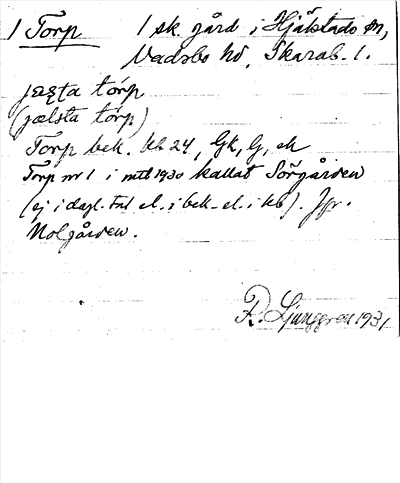 1 Torp 1 sk. gård i Hjälstads sn,
Vadsbo hd, Skarab. l.
jæsta tórp
(jælsta tórp)
Torp bek. kb 24, Gk, G, ek
Torp nr 1 i mtl 1930 kallat Sörgården
(ej i dagl. tal el. i bek. el. i kb). Jfr.
Nolgården.
R. Ljunggren 1931